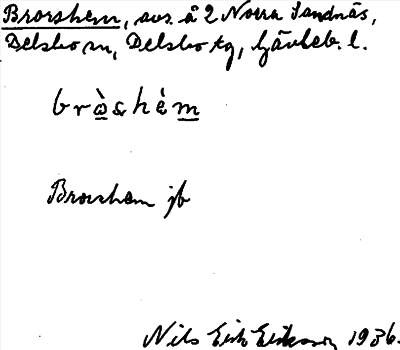 Brorshem, avs. å 2 Norra Sandnäs,
Delsbo sn, Delsbo tg, Gävleb. l.
bròshém
Brorshem jb
Nils Erik Eriksson 1936.